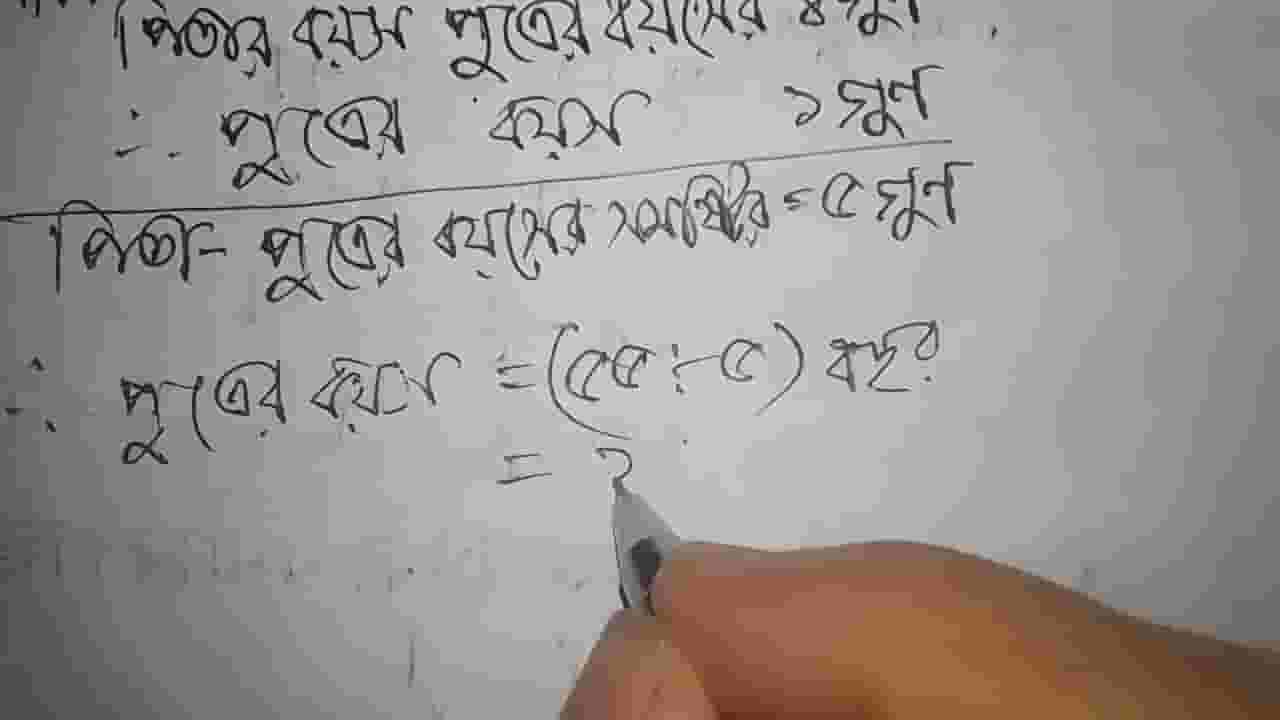 পিতার বয়স পুত্রের বয়সের ৪ গুণ
∴ পুত্রের বয়স ১ গুণ
পিতা-পুত্রের বয়সের সমষ্টির = ৫ গুণ
∴ পুত্রের বয়স = (৫৫ ÷ ৫) বছর
= ১